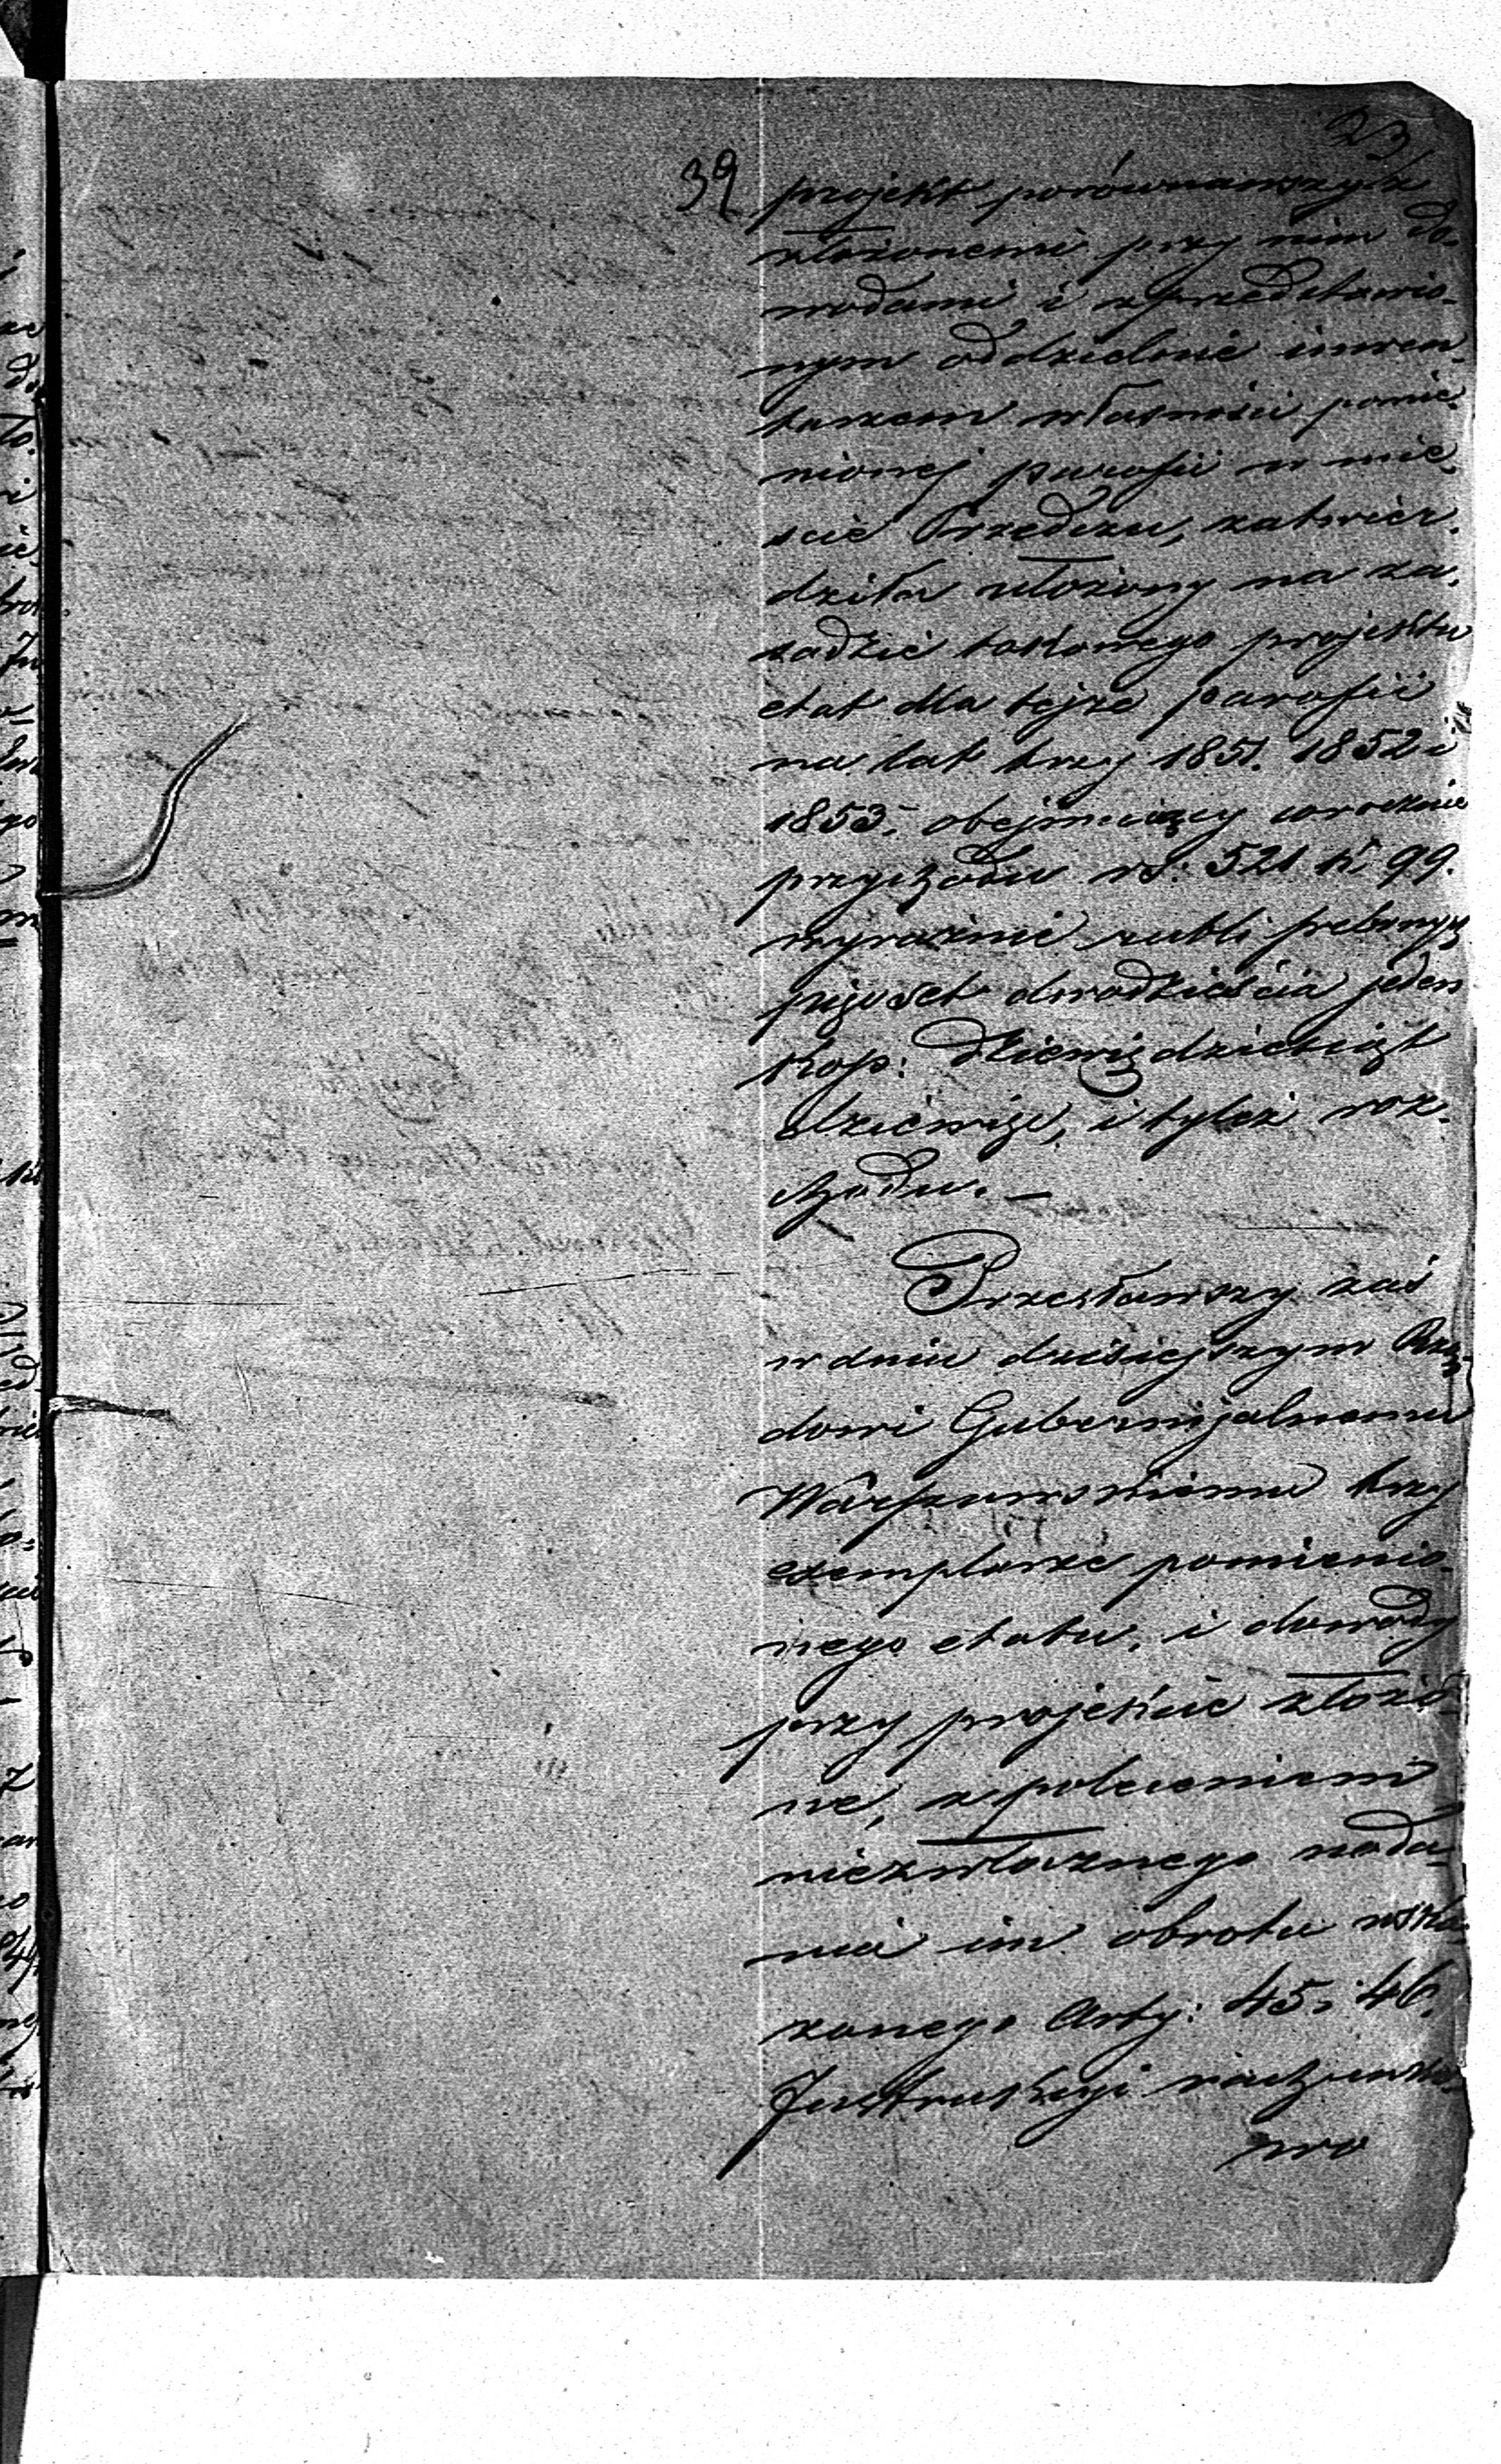 23
39
projekt porównawszy z
złożonemi przy nim do-
wodami, i z przedstawio-
nym oddzielnie inwen-
tarzem własności pomie-
nionej parafii w mie-
ście Przedczu, zatwier-
dziła ułożony na za-
sadzie takowego projektu
etat dla tejże parafii
na lat trzy 1851. 1852 i
1853. obejmujący corocznie
przychodu rs: 521 k. 99.
wyraźnie rubli srebrnych
pięćset dwadzieścia jeden
kop: dziewięćdziesiąt
dziewięć, i tyleż roz-
chodu. —
Przesławszy zaś
w dniu dzisiejszym Rzą-
dowi Gubernijalnemu
Warszawskiemu trzy
exemplarze pomienio-
nego etatu, i dowody
przy projekcie złożo-
ne, z poleceniem
niezwłocznego nada-
nia im obrotu wska-
zanego Arty: 45 i 46.
Instrukcyi rachunko-
wo